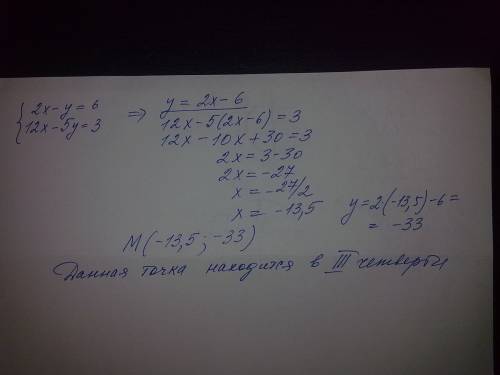 {2x-y=6
12x-5y=3 ⇒ y=2x-6
12x-5(2x-6)=3
12x-10x+30=3
2x=3-30
2x=-27
x=-27/2
x=-13,5 y=2(-13,5)-6=
=-33
M(-13,5;-33)
Данная точка находится в III четверти